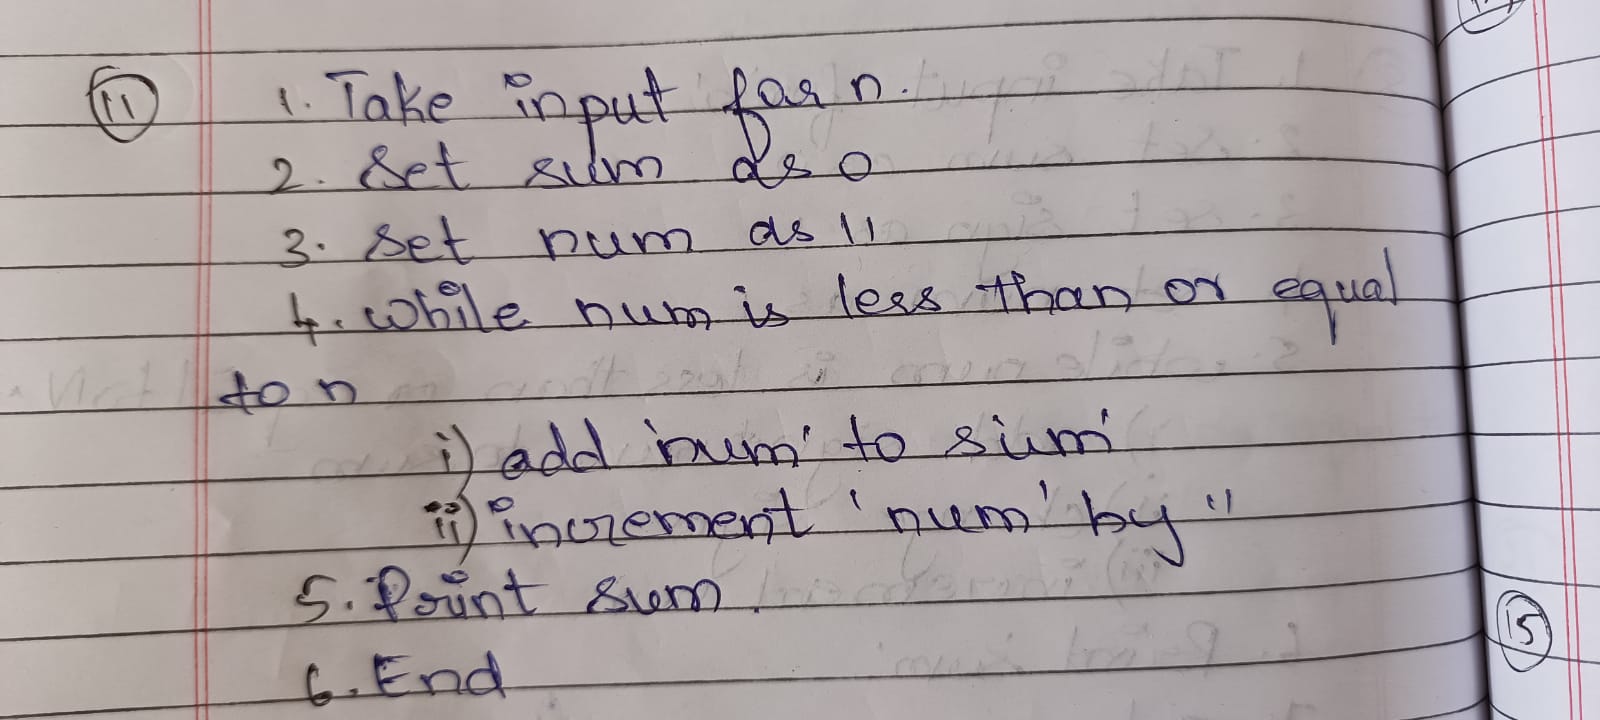 11
1. Take input for n.
2. Set sum as 0
3. Set num as 11
4. While num is less than or equal
to n
i) add 'num' to sum'
ii) increment 'num' by 11
5. Print sum.
6. End
15